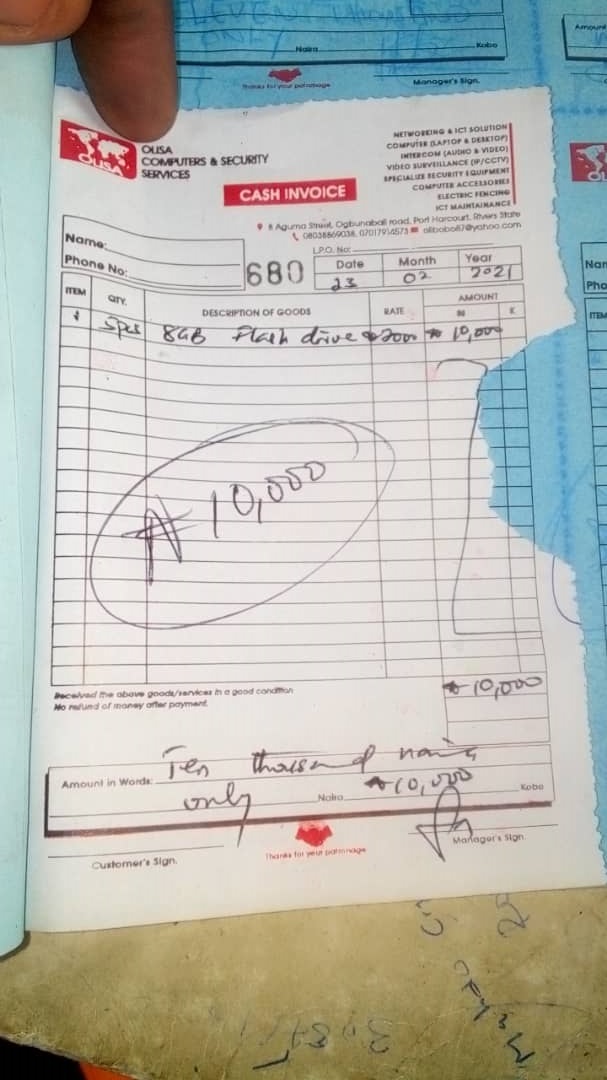 ELEVEN
ONLY
Naira
Kobo
Thanks for your patronage
Manager's Sign.
Amount
OLISA
OLISA
COMPUTERS & SECURITY
SERVICES
NETWORKING & ICT SOLUTION
COMPUTER (LAPTOP & DESKTOP)
INTERCOM (AUDIO & VIDEO)
VIDEO SURVEILLANCE (IP/CCTV)
SPECIALIZE SECURITY EQUIPMENT
COMPUTER ACCESSORIES
ELECTRIC FENCING
ICT MAINTAINANCE
CASH INVOICE
8 Aguma Street, Ogbunabali road, Port Harcourt, Rivers State
08038869038, 07017914573 olibobo87@yahoo.com
Name:
Phone No:
680
L.P.O. No:
Date Month Year
23 02 2021
ITEM QTY. DESCRIPTION OF GOODS RATE AMOUNT
N K
1 5pcs 8GB Flash drive ₦2000 ₦ 10,000
₦ 10,000
Received the above goods/services in a good condition
No refund of money after payment.
₦ 10,000
Amount in Words: Ten thousand naira
only Naira ₦10,000 Kobo
Customer's Sign.
Thanks for your patronage
Manager's Sign.
Nam
Pho
ITEM